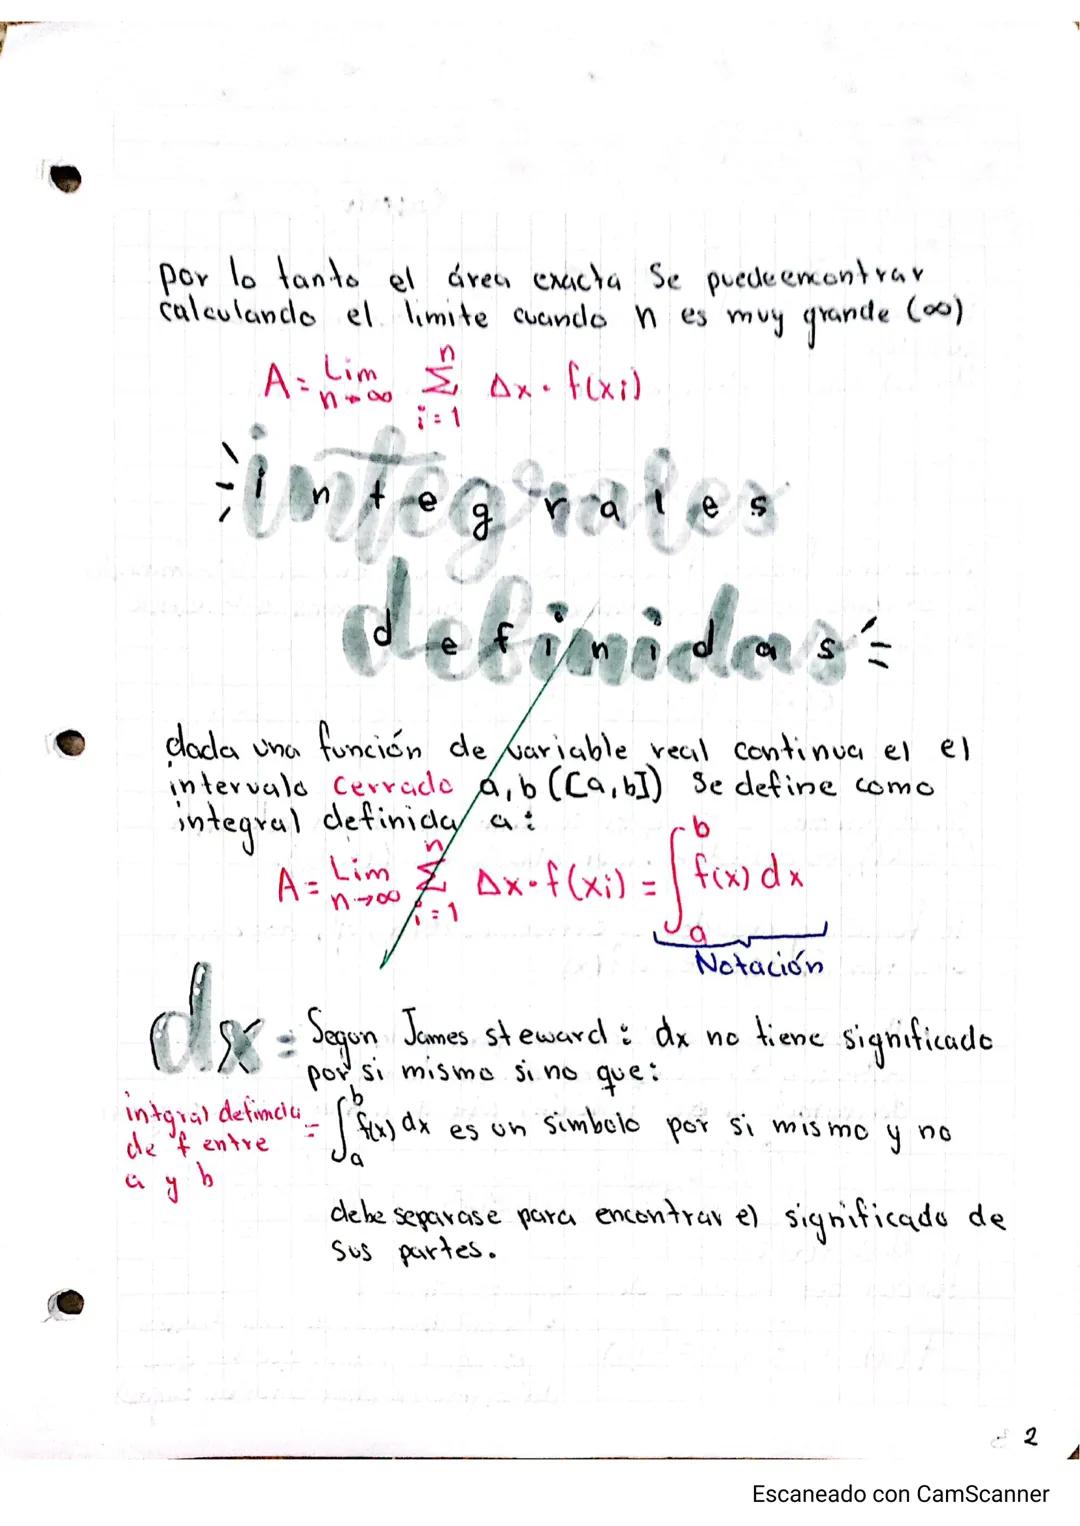 por lo tanto el área exacta Se puede encontrar
calculando el limite cuando n es muy grande (∞)
A = Lim n→∞ n Σ i=1 Δx · f(xi)
integrales
definidas
dada una función de variable real continua el el
intervalo cerrado a,b ([a,b]) Se define como
integral definida a:
A = Lim n→∞ n Σ i=1 Δx · f(xi) = ∫ b a f(x) dx
Notación
dx = Segun James steward: dx no tiene significado
por si mismo sino que:
intgral definida
de f entre
a y b
= ∫ b a f(x) dx es un simbolo por si mismo y no
debe separase para encontrar el significado de
sus partes.
2
Escaneado con CamScanner